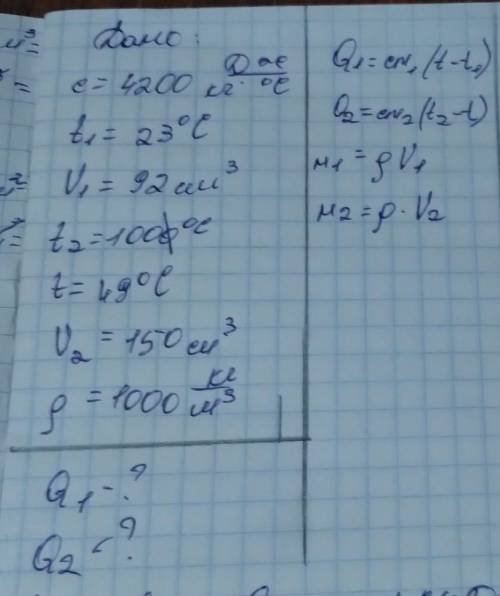 Дано:
c = 4200 Дж/кг·°C
t₁ = 23°C
V₁ = 92 см³
t₂ = 100°C
t = 49°C
V₂ = 150 см³
ρ = 1000 кг/м³
Q₁ - ?
Q₂ - ?
Q₁ = cm₁(t-t₁)
Q₂ = cm₂(t₂-t)
м₁ = ρV₁
м₂ = ρ·V₂